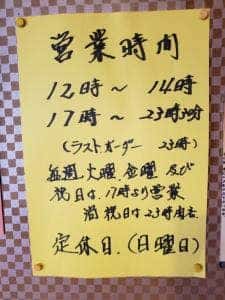 営業時間
12時～14時
17時～23時30分
(ラストオーダー 23時)
毎週火曜.金曜 及び
祝日は、17時より営業
尚 祝日は23時
定休日.(日曜日)